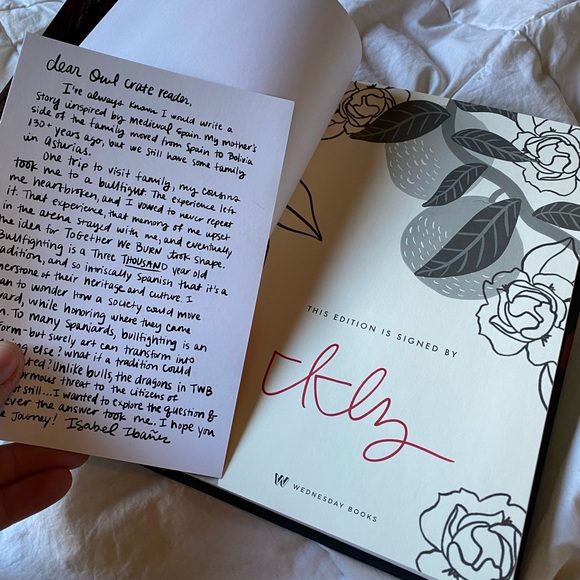 dear Owl Crate reader,
I've always known I would write a
story inspired by Medieval Spain. My mother's
side of the family moved from Spain to Bolivia
130+ years ago, but we still have some family
in Asturias.
One trip to visit family, my cousins
took me to a bullfight. The experience left
me heartbroken, and I vowed to never repeat
it. That experience, that memory of me upset
in the arena stayed with me, and eventually
the idea for TOGETHER WE BURN took shape.
Bullfighting is a Three THOUSAND year old
radition, and so intrisically Spanish that it's a
nerstone of their heritage and culture. I
an to wonder how a society could move
ward, while honoring where they came
n. To many Spaniards, bullfighting is an
form - but surely art can transform into
ng else? what if a tradition could
ted? Unlike bulls the dragons in TWB
ormous threat to the citizens of
still... I wanted to explore the question &
ever the answer took me. I hope you
e Journey! Isabel Ibañez
THIS EDITION IS SIGNED BY
W WEDNESDAY BOOKS